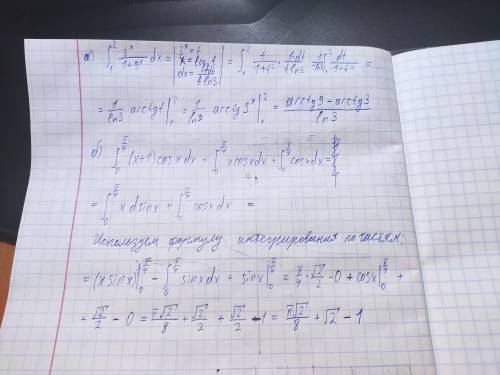 а) ∫₁² 3ˣ/(1+9ˣ) dx = | 3ˣ = t  x = log₃t  dx = dt/(t ln3) | = ∫₁² t/(1+t²) · 1·dt/(t ln3) = 1/ln3 ∫₁² dt/(1+t²) =
= 1/ln3 arctgt |₁² = 1/ln3 arctg3ˣ |₁² = (arctg9 - arctg3)/ln3
б) ∫₀^(π/4) (x+1) cosx dx = ∫₀^(π/4) xcosxdx + ∫₀^(π/4) cosxdx =
= ∫₀^(π/4) x dsinx + ∫₀^(π/4) cosx dx =
Используем формулу интегрирования по частям;
= (x sinx)|₀^(π/4) - ∫₀^(π/4) sinx dx + sinx|₀^(π/4) = π/4 · √2/2 - 0 + cosx|₀^(π/4) +
+ √2/2 - 0 = π√2/8 + √2/2 + √2/2 - 1 = π√2/8 + √2 - 1